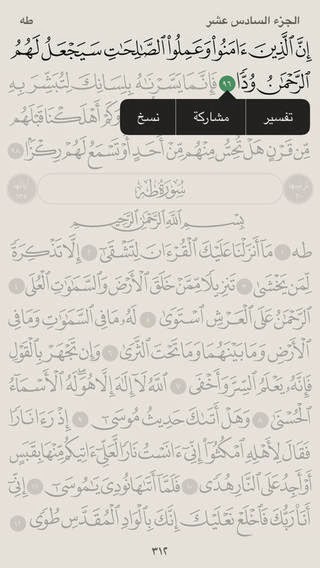 الجزء السادس عشر
طه
إِنَّ ٱلَّذِينَ ءَامَنُوا۟ وَعَمِلُوا۟ ٱلصَّٰلِحَٰتِ سَيَجْعَلُ لَهُمُ
ٱلرَّحْمَٰنُ وُدًّا ٩٦ فَإِنَّمَا يَسَّرْنَٰهُ بِلِسَانِكَ لِتُبَشِّرَ بِهِ
تفسير مشاركة نسخ
وَكَمْ أَهْلَكْنَا قَبْلَهُم
مِّن قَرْنٍ هَلْ تُحِسُّ مِنْهُم مِّنْ أَحَدٍ أَوْ تَسْمَعُ لَهُمْ رِكْزًۢا ٩٨
سُورَةُ طه
بِسْمِ ٱللَّهِ ٱلرَّحْمَٰنِ ٱلرَّحِيمِ
طه ١ مَآ أَنزَلْنَا عَلَيْكَ ٱلْقُرْءَانَ لِتَشْقَىٰٓ ٢ إِلَّا تَذْكِرَةً
لِّمَن يَخْشَىٰ ٣ تَنزِيلًا مِّمَّنْ خَلَقَ ٱلْأَرْضَ وَٱلسَّمَٰوَٰتِ ٱلْعُلَى ٤
ٱلرَّحْمَٰنُ عَلَى ٱلْعَرْشِ ٱسْتَوَىٰ ٥ لَهُۥ مَا فِى ٱلسَّمَٰوَٰتِ وَمَا فِى
ٱلْأَرْضِ وَمَا بَيْنَهُمَا وَمَا تَحْتَ ٱلثَّرَىٰ ٦ وَإِن تَجْهَرْ بِٱلْقَوْلِ
فَإِنَّهُۥ يَعْلَمُ ٱلسِّرَّ وَأَخْفَى ٧ ٱللَّهُ لَآ إِلَٰهَ إِلَّا هُوَ لَهُ ٱلْأَسْمَآءُ
ٱلْحُسْنَىٰ ٨ وَهَلْ أَتَىٰكَ حَدِيثُ مُوسَىٰٓ ٩ إِذْ رَءَا نَارًا
فَقَالَ لِأَهْلِهِ ٱمْكُثُوٓا۟ إِنِّىٓ ءَانَسْتُ نَارًا لَّعَلِّىٓ ءَاتِيكُم مِّنْهَا بِقَبَسٍ
أَوْ أَجِدُ عَلَى ٱلنَّارِ هُدًى ١٠ فَلَمَّآ أَتَىٰهَا نُودِىَ يَٰمُوسَىٰٓ ١١ إِنِّىٓ
أَنَا۠ رَبُّكَ فَٱخْلَعْ نَعْلَيْكَ إِنَّكَ بِٱلْوَادِ ٱلْمُقَدَّسِ طُوًى ١٢
٣١٢